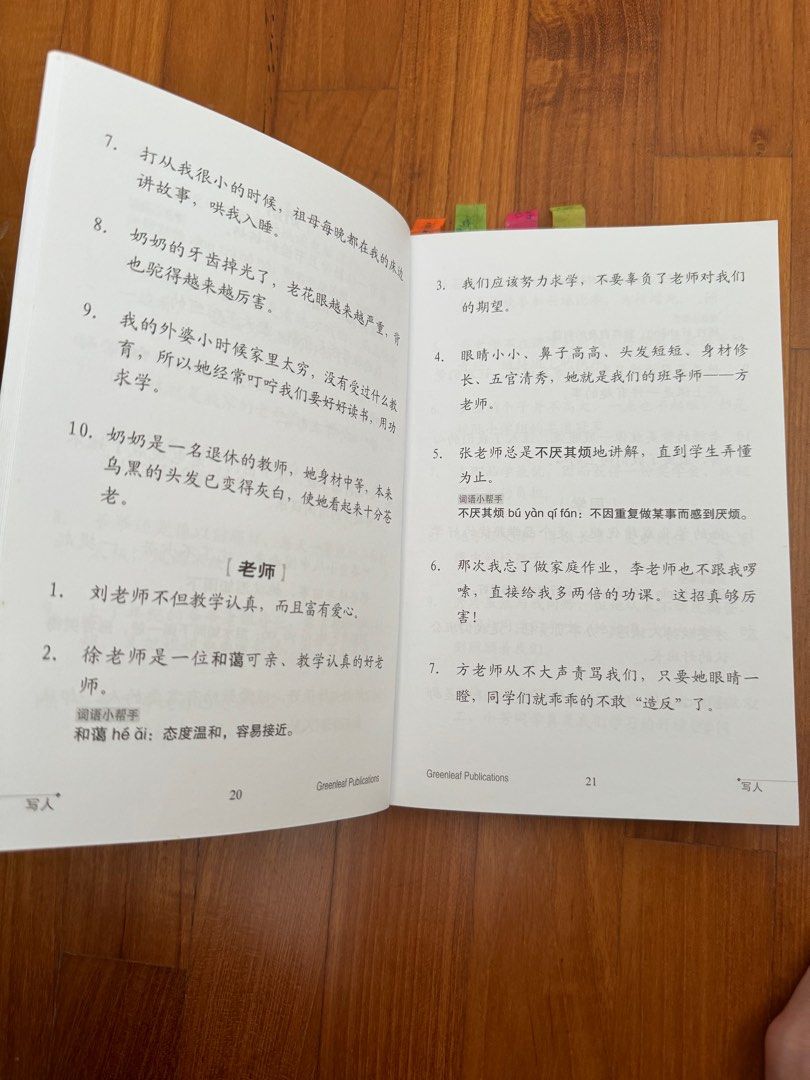 7. 打从我很小的时候，祖母每晚都在我的床边
讲故事，哄我入睡。
8. 奶奶的牙齿掉光了，老花眼越来越严重，背
也驼得越来越厉害。
9. 我的外婆小时候家里太穷，没有受过什么教
育，所以她经常叮咛我们要好好读书，用功
求学。
10. 奶奶是一名退休的教师，她身材中等，本来
乌黑的头发已变得灰白，使她看起来十分苍
老。
[老师]
1. 刘老师不但教学认真，而且富有爱心。
2. 徐老师是一位和蔼可亲、教学认真的好老
师。
词语小帮手
和蔼 hé ǎi：态度温和，容易接近。
写人
20
Greenleaf Publications
3. 我们应该努力求学，不要辜负了老师对我们
的期望。
4. 眼睛小小、鼻子高高、头发短短、身材修
长、五官清秀，她就是我们的班导师——方
老师。
5. 张老师总是不厌其烦地讲解，直到学生弄懂
为止。
词语小帮手
不厌其烦 bú yàn qí fán：不因重复做某事而感到厌烦。
6. 那次我忘了做家庭作业，李老师也不跟我啰
嗦，直接给我多两倍的功课。这招真够厉
害！
7. 方老师从不大声责骂我们，只要她眼睛一
瞪，同学们就乖乖的不敢“造反”了。
Greenleaf Publications
21
写人